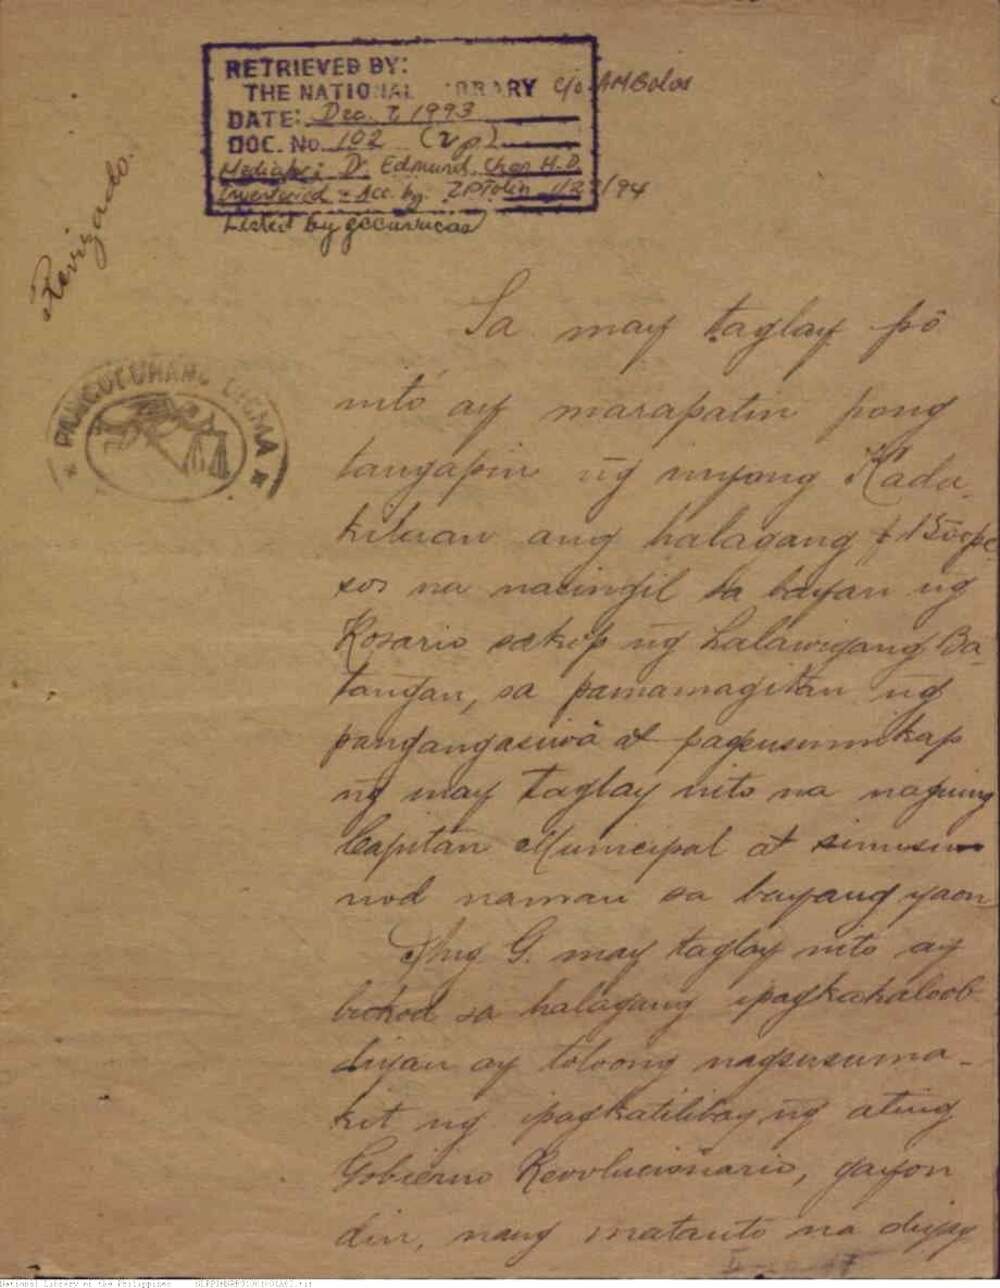 RETRIEVED BY:
THE NATIONAL LIBRARY c/o AMBolos
DATE: Dec. 7, 1993
DOC. No. 102 (2 p)
Mediator: Dr. Edmund H.D.
Inventoried & Acc. by: ZPTolen 1/27/94
Listed by
Revizado.
PANGULUHANG DIGMA
Sa may taglay pô
nitó ay marapatin pong
tangapin ng̃ inyong Kada-
kilaan ang halagang ₱ 1500 pe-
sos na nasingil sa bayan ng̃
Rosario sakop ng̃ halawigang Ba-
tang̃an, sa pamamagitan ng̃
pang̃ang̃asiwâ at pagsusumikap
ng̃ may taglay nito na naguing
Capitan Municipal at sinusu-
nod naman sa bayang yaon
Ang G. may taglay nito ay
bukod sa halagang ipagkakaloob
diyan ay toloong nagsusuma-
kit ng̃ ipagkatitibay ng̃ ating
Gobierno Revolucionario, gayon
din, nang matanto na
National Library of the Philippines